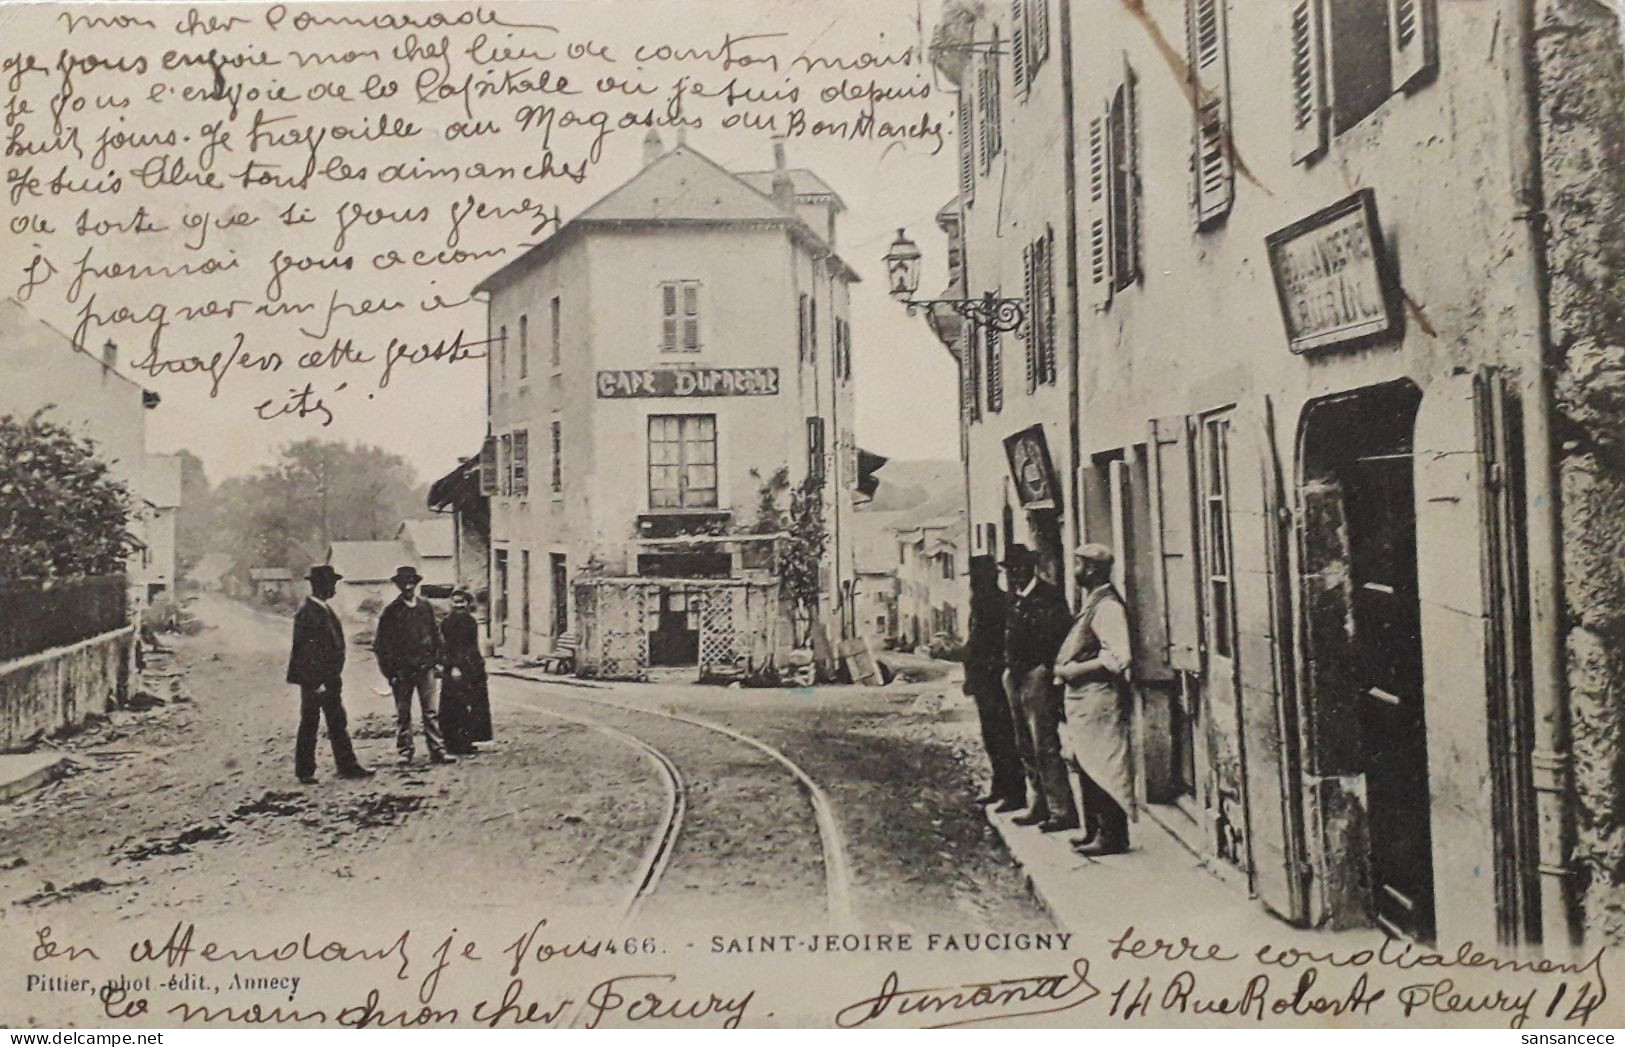 mon cher Camarade
je vous envoie mon chef lieu de canton mais
je vous l'envoie de la Capitale où je suis depuis
huit jours. Je travaille au Magasins du Bon Marché.
Je suis libre tous les dimanches
de sorte que si vous venez
je pourrai vous accom
pagner un peu à
travers cette vaste
cité.
CAFE DUFRESNE
BOULANGERIE
En attendant je vous serre cordialement
466. - SAINT-JEOIRE FAUCIGNY
Pittier, phot.-édit., Annecy
la main mon cher Faury.
14 Rue Robert Fleury 14
sansancece